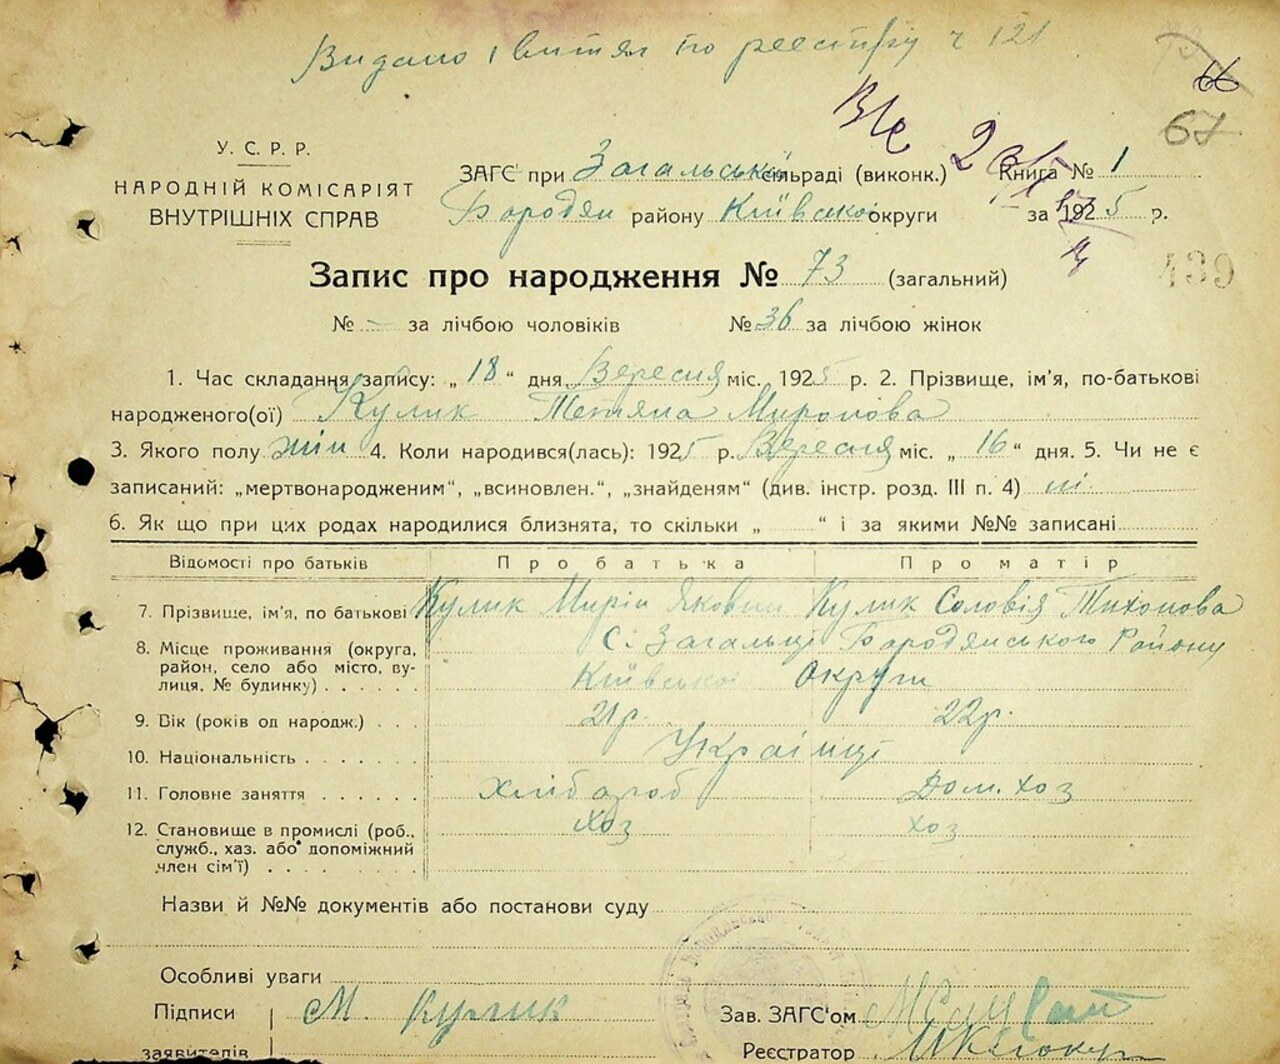 Видано витяг по реестру ч 121
66
67
У. С. Р. Р.
НАРОДНІЙ КОМІСАРІЯТ
ВНУТРІШНІХ СПРАВ
ЗАГС при Загальській сільраді (виконк.) Книга № 1
Бородян району Київської округи за 1925 р.
Запис про народження № 73 (загальний)
139
№ – за лічбою чоловіків № 36 за лічбою жінок
1. Час складання запису: „ 18 “ дня Вересня міс. 1925 р. 2. Прізвище, ім’я, по-батькові
народженого(ої) Кулик Тетяна Миронова
3. Якого полу жін 4. Коли народився(лась): 1925 р. Вересня міс. „ 16 “ дня. 5. Чи не є
записаний: „мертвонародженим“, „всиновлен.“, „знайденям“ (див. інстр. розд. III п. 4) ні
6. Як що при цих родах народилися близнята, то скільки „ “ і за якими №№ записані
Відомості про батьків Про батька Про матір
7. Прізвище, ім’я, по батькові Кулик Мирін Якович Кулик Соловія Тихонова
8. Місце проживання (округа, район, село або місто, вулиця, № будинку) с. Загальці Бородянського Району
Київської Округи
9. Вік (років од народж.) 21р. 22р.
10. Національність Українці
11. Головне заняття Хлібороб Дом. хоз
12. Становище в промислі (роб., служб., хаз. або допоміжний член сім’ї) хоз хоз
Назви й №№ документів або постанови суду
Особливі уваги
Підписи М. Кулик Зав. ЗАГС’ом
заявителів Реєстратор